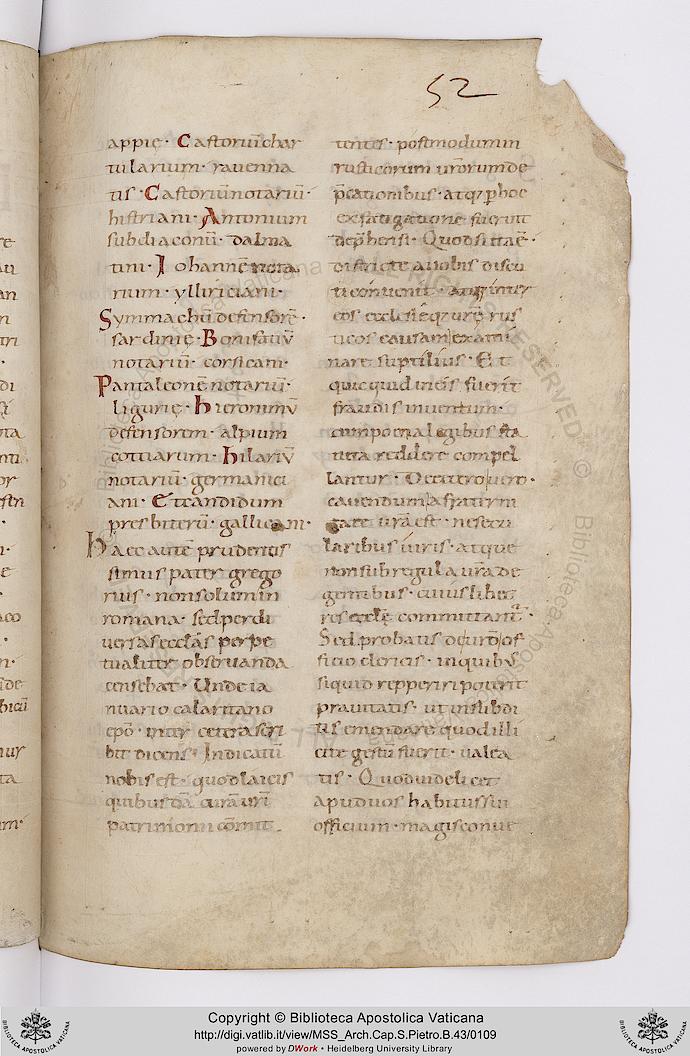 52
appię · Castoriū char
tularium · ravenna
tis · Castoriū notariū ·
histriani · Antonium
subdiaconū · dalma
tini · Iohannē nota
rium · ylliriciani ·
Symmachū defensorē ·
sardinię · Bonifatiū
notariū · corsicani ·
Pantaleonē notariū ·
ligurię · hieronimū
defensorem · alpium
cottiarum · hilariū
notariū · germanici
ani · Et candidum
presbiterū · gallicani ·
Haec autē prudentis
simus pater grego
rius · non solum in
romana · sed per di
versas ecclās perpe
tualiter observanda
censebat · Unde ia
nuario calaritano
epō · inter cetera scri
bit dicens · Indicatū
nobis est · quod laicis
quibusdā curā vr̄i
patrimonii cōmit
tentes · postmodum in
rusticorum vr̄orum de
p̄cationibus · atq; p hoc
ex fatigatione fuerint
dep̄hensi · Quod si ita ē ·
districte a vobis discu
ti convenit · atq; inter
eos ecclesięq; vrē rus
ticos causam exami
nare suptilius · Et
quicquid in eis fuerit
fraudis inventum ·
cum poena legibus sta
tuta reddere compel
lantur · De cetero vero ·
cavendum a fraterni
tate vr̄a est · ne secu
laribus viris · atque
non sub regula vr̄a de
gentibus · cuiuslibet
res ecclę committant ·
Sed probatis de vr̄o of
ficio clericis · in quibus
siquid repperiri potuerit
pravitatis · ut in subdi
tis emendare quod illi
cite gestū fuerit · valea
tis · Quod videlicet
apud vos habitus sui
officium · magis conve
Copyright © Biblioteca Apostolica Vaticana
http://digi.vatlib.it/view/MSS_Arch.Cap.S.Pietro.B.43/0109
powered by DWork • Heidelberg University Library